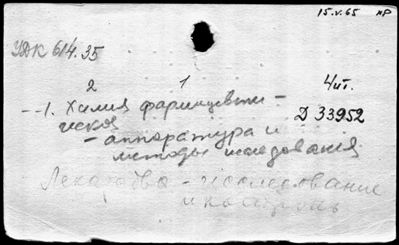 15.V.65 нр
УДК 614.35
2 1 4ит.
1. Химия фармацевти-
ческая Д 33952
- аппаратура и
методы исследования
Лекарства - исследование
и контроль